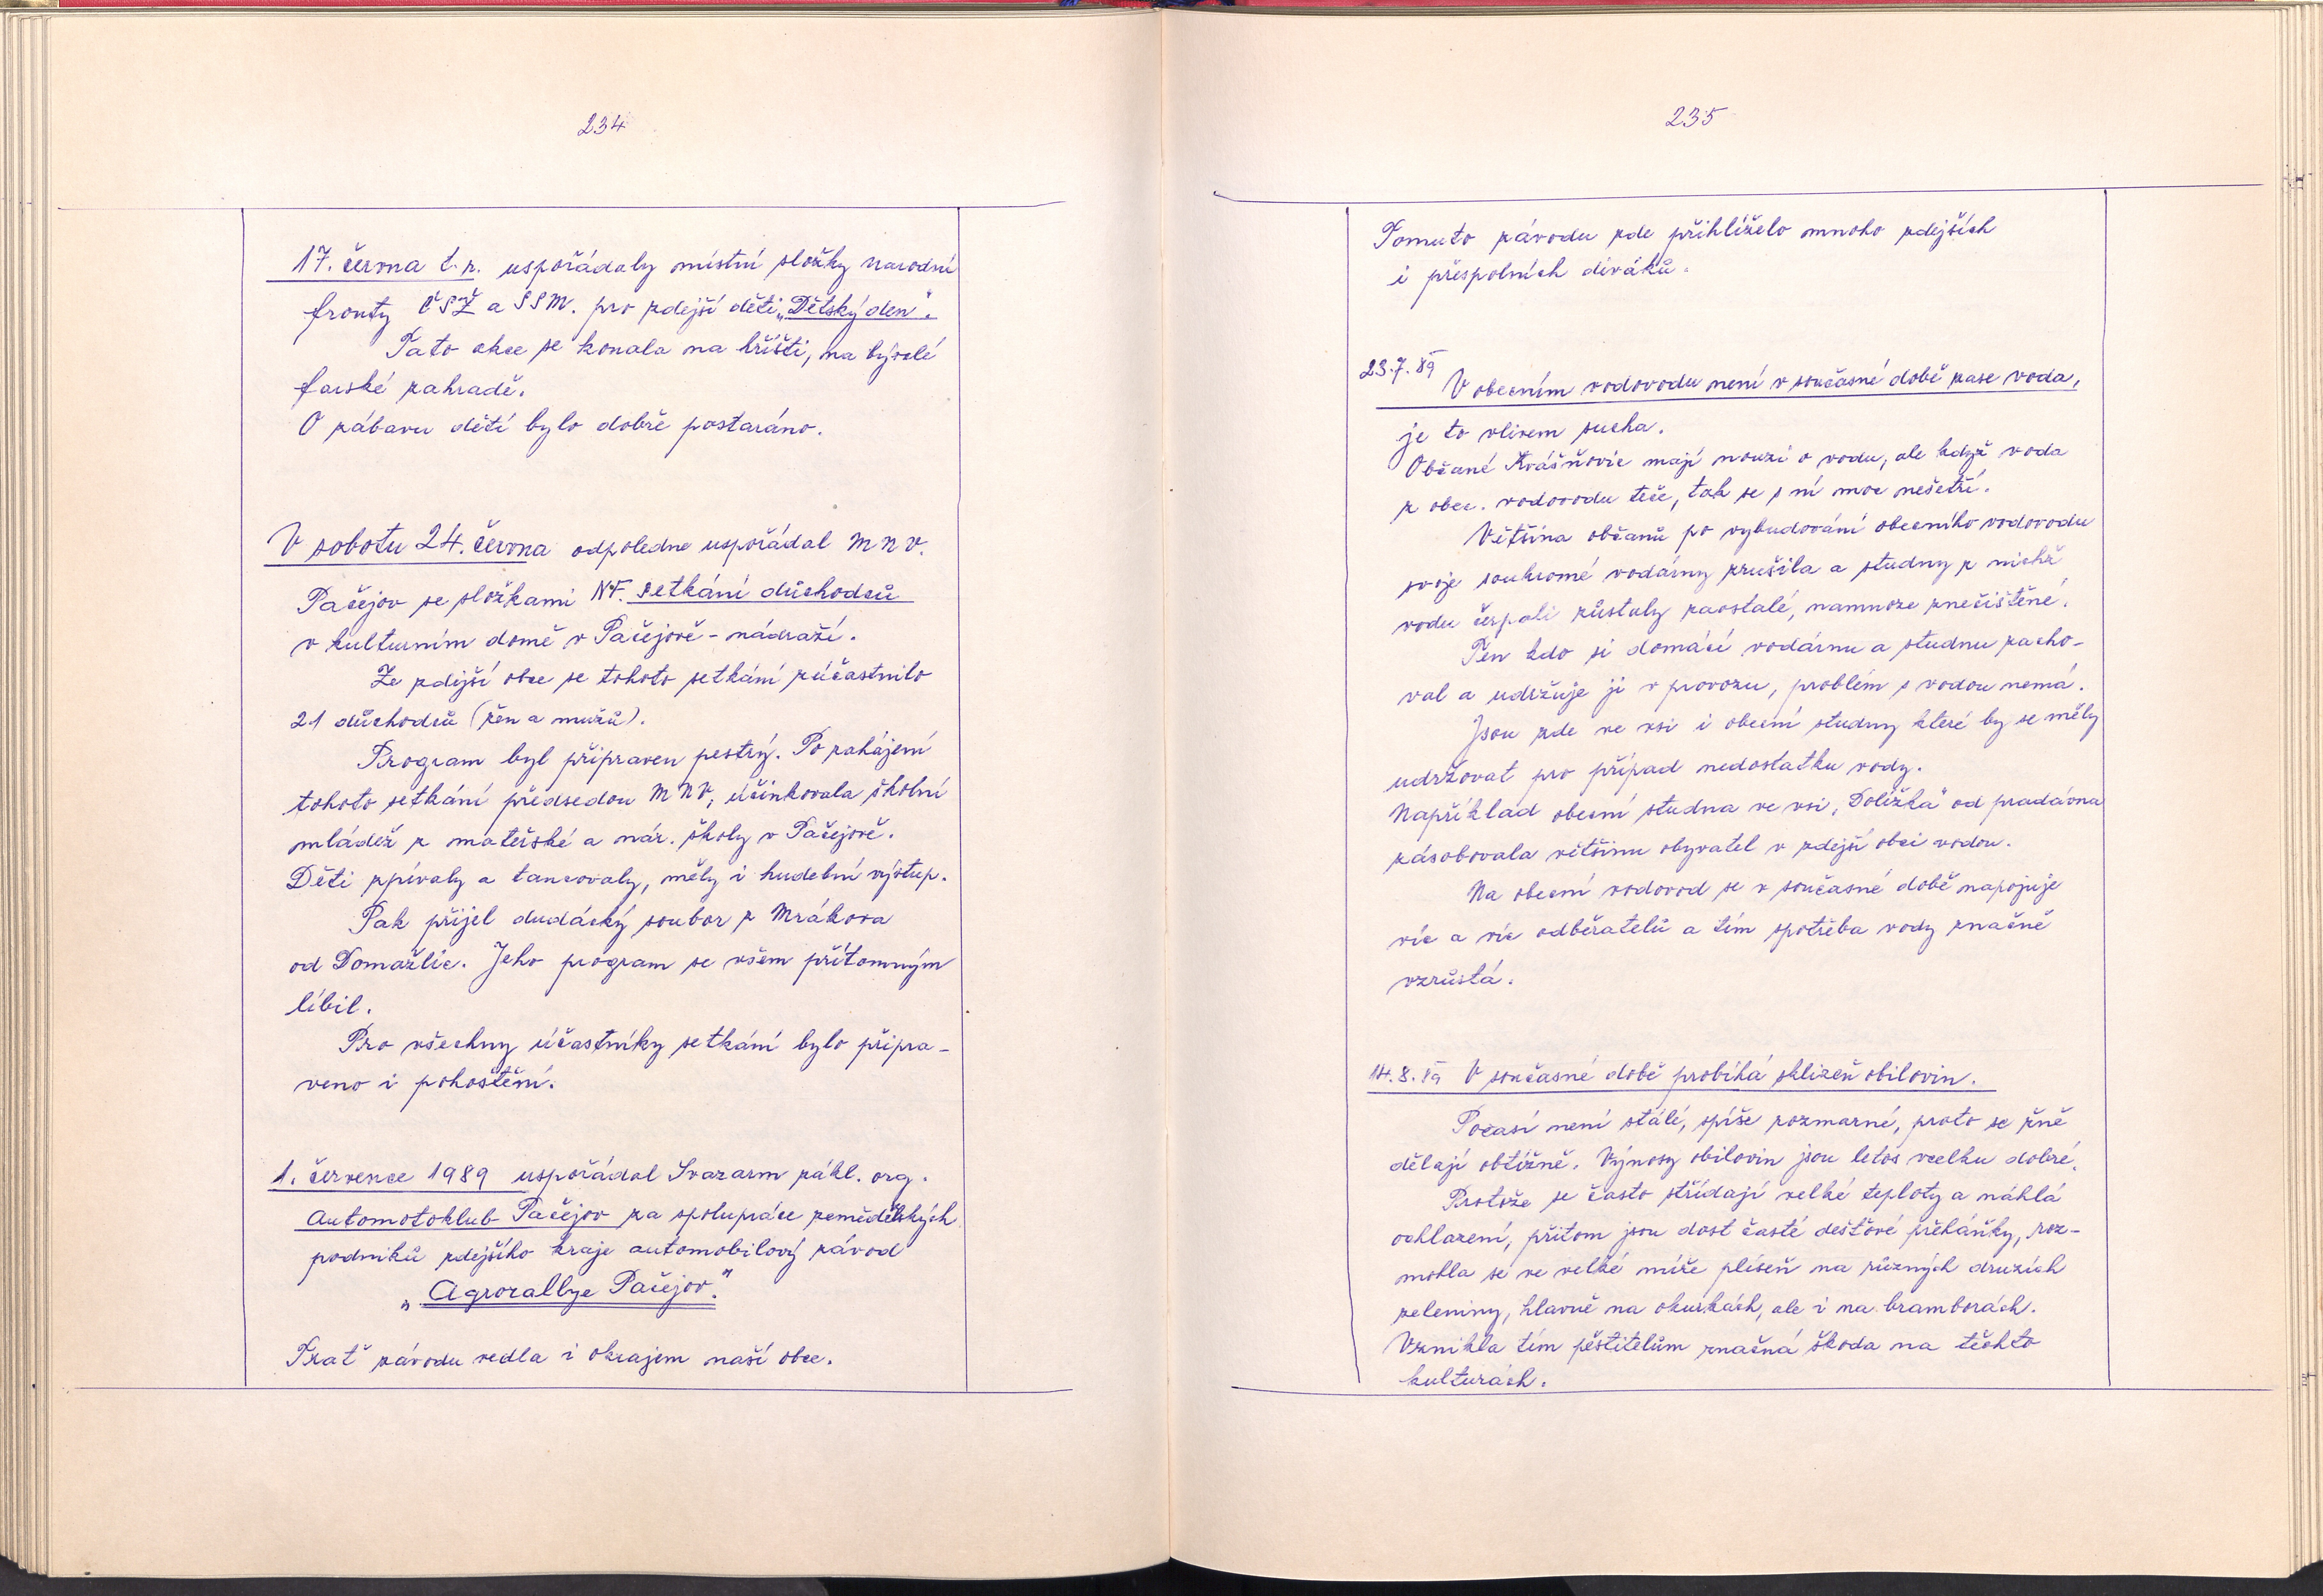 234
17. června t.r. uspořádaly místní složky národní
fronty ČSŽ a SSM. pro zdejší děti „Dětský den“.
Tato akce se konala na hřišti, na bývalé
farské zahradě.
O zábavu dětí bylo dobře postaráno.
V sobotu 24. června odpoledne uspořádal M N V.
Pačejov se složkami NF. setkání důchodců
v kulturním domě v Pačejově - nádraží.
Ze zdejší obce se tohoto setkání zúčastnilo
21 důchodců (žen a mužů).
Program byl připraven pestrý. Po zahájení
tohoto setkání předsedou M N V, účinkovala školní
mládež z mateřské a nár. školy v Pačejově.
Děti zpívaly a tancovaly, měly i hudební výstup.
Pak přijel dudácký soubor z Mrákova
od Domažlic. Jeho program se všem přítomným
líbil.
Pro všechny účastníky setkání bylo připra-
veno i pohoštění.
1. července 1989 uspořádal Svazarm zákl. org.
Automotoklub Pačejov za spolupráce zemědělských
podniků zdejšího kraje automobilový závod
„Agrorallye Pačejov.“
Trať závodu vedla i okrajem naší obce.
235
Tomuto závodu zde přihlíželo mnoho zdejších
i přespolních diváků.
23.7.89 V obecním vodovodu není v současné době zase voda,
je to vlivem sucha.
Občané Kvášňovic mají nouzi o vodu, ale když voda
z obec. vodovodu teče, tak se s ní moc nešetří.
Většina občanů po vybudování obecního vodovodu
svoje soukromé vodárny zrušila a studny z nichž
vodu čerpali zůstaly zaostalé, namnoze znečištěné.
Ten kdo si domácí vodárnu a studnu zacho-
val a udržuje ji v provozu, problém s vodou nemá.
Jsou zde ve vsi i obecní studny které by se měly
udržovat pro případ nedostatku vody.
Například obecní studna ve vsi, „Dolížka“ od pradávna
zásobovala většinu obyvatel v zdejší obci vodou.
Na obecní vodovod se v současné době napojuje
víc a víc odběratelů a tím spotřeba vody značně
vzrůstá.
14.8.89 V současné době probíhá sklizeň obilovin.
Počasí není stálé, spíše rozmarné, proto se žně
dělají obtížně. Výnosy obilovin jsou letos vcelku dobré.
Protože se často střídají velké teploty a náhlá
ochlazení, přitom jsou dost časté dešťové přeháňky, roz-
mohla se ve velké míře plíseň na různých druzích
zeleniny, hlavně na okurkách, ale i na bramborách.
Vznikla tím pěstitelům značná škoda na těchto
kulturách.